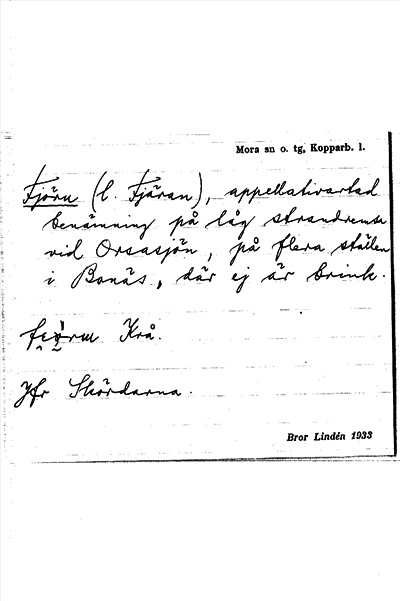 Mora sn o. tg, Kopparb. l.
Fjörn (l. Fjäran), appellativartad
benämning på låg strandremsa
vid Orsasjön, på flera ställen
i Bonäs, där ej är brink.
Krå.
Jfr Skördarna.
Bror Lindén 1933